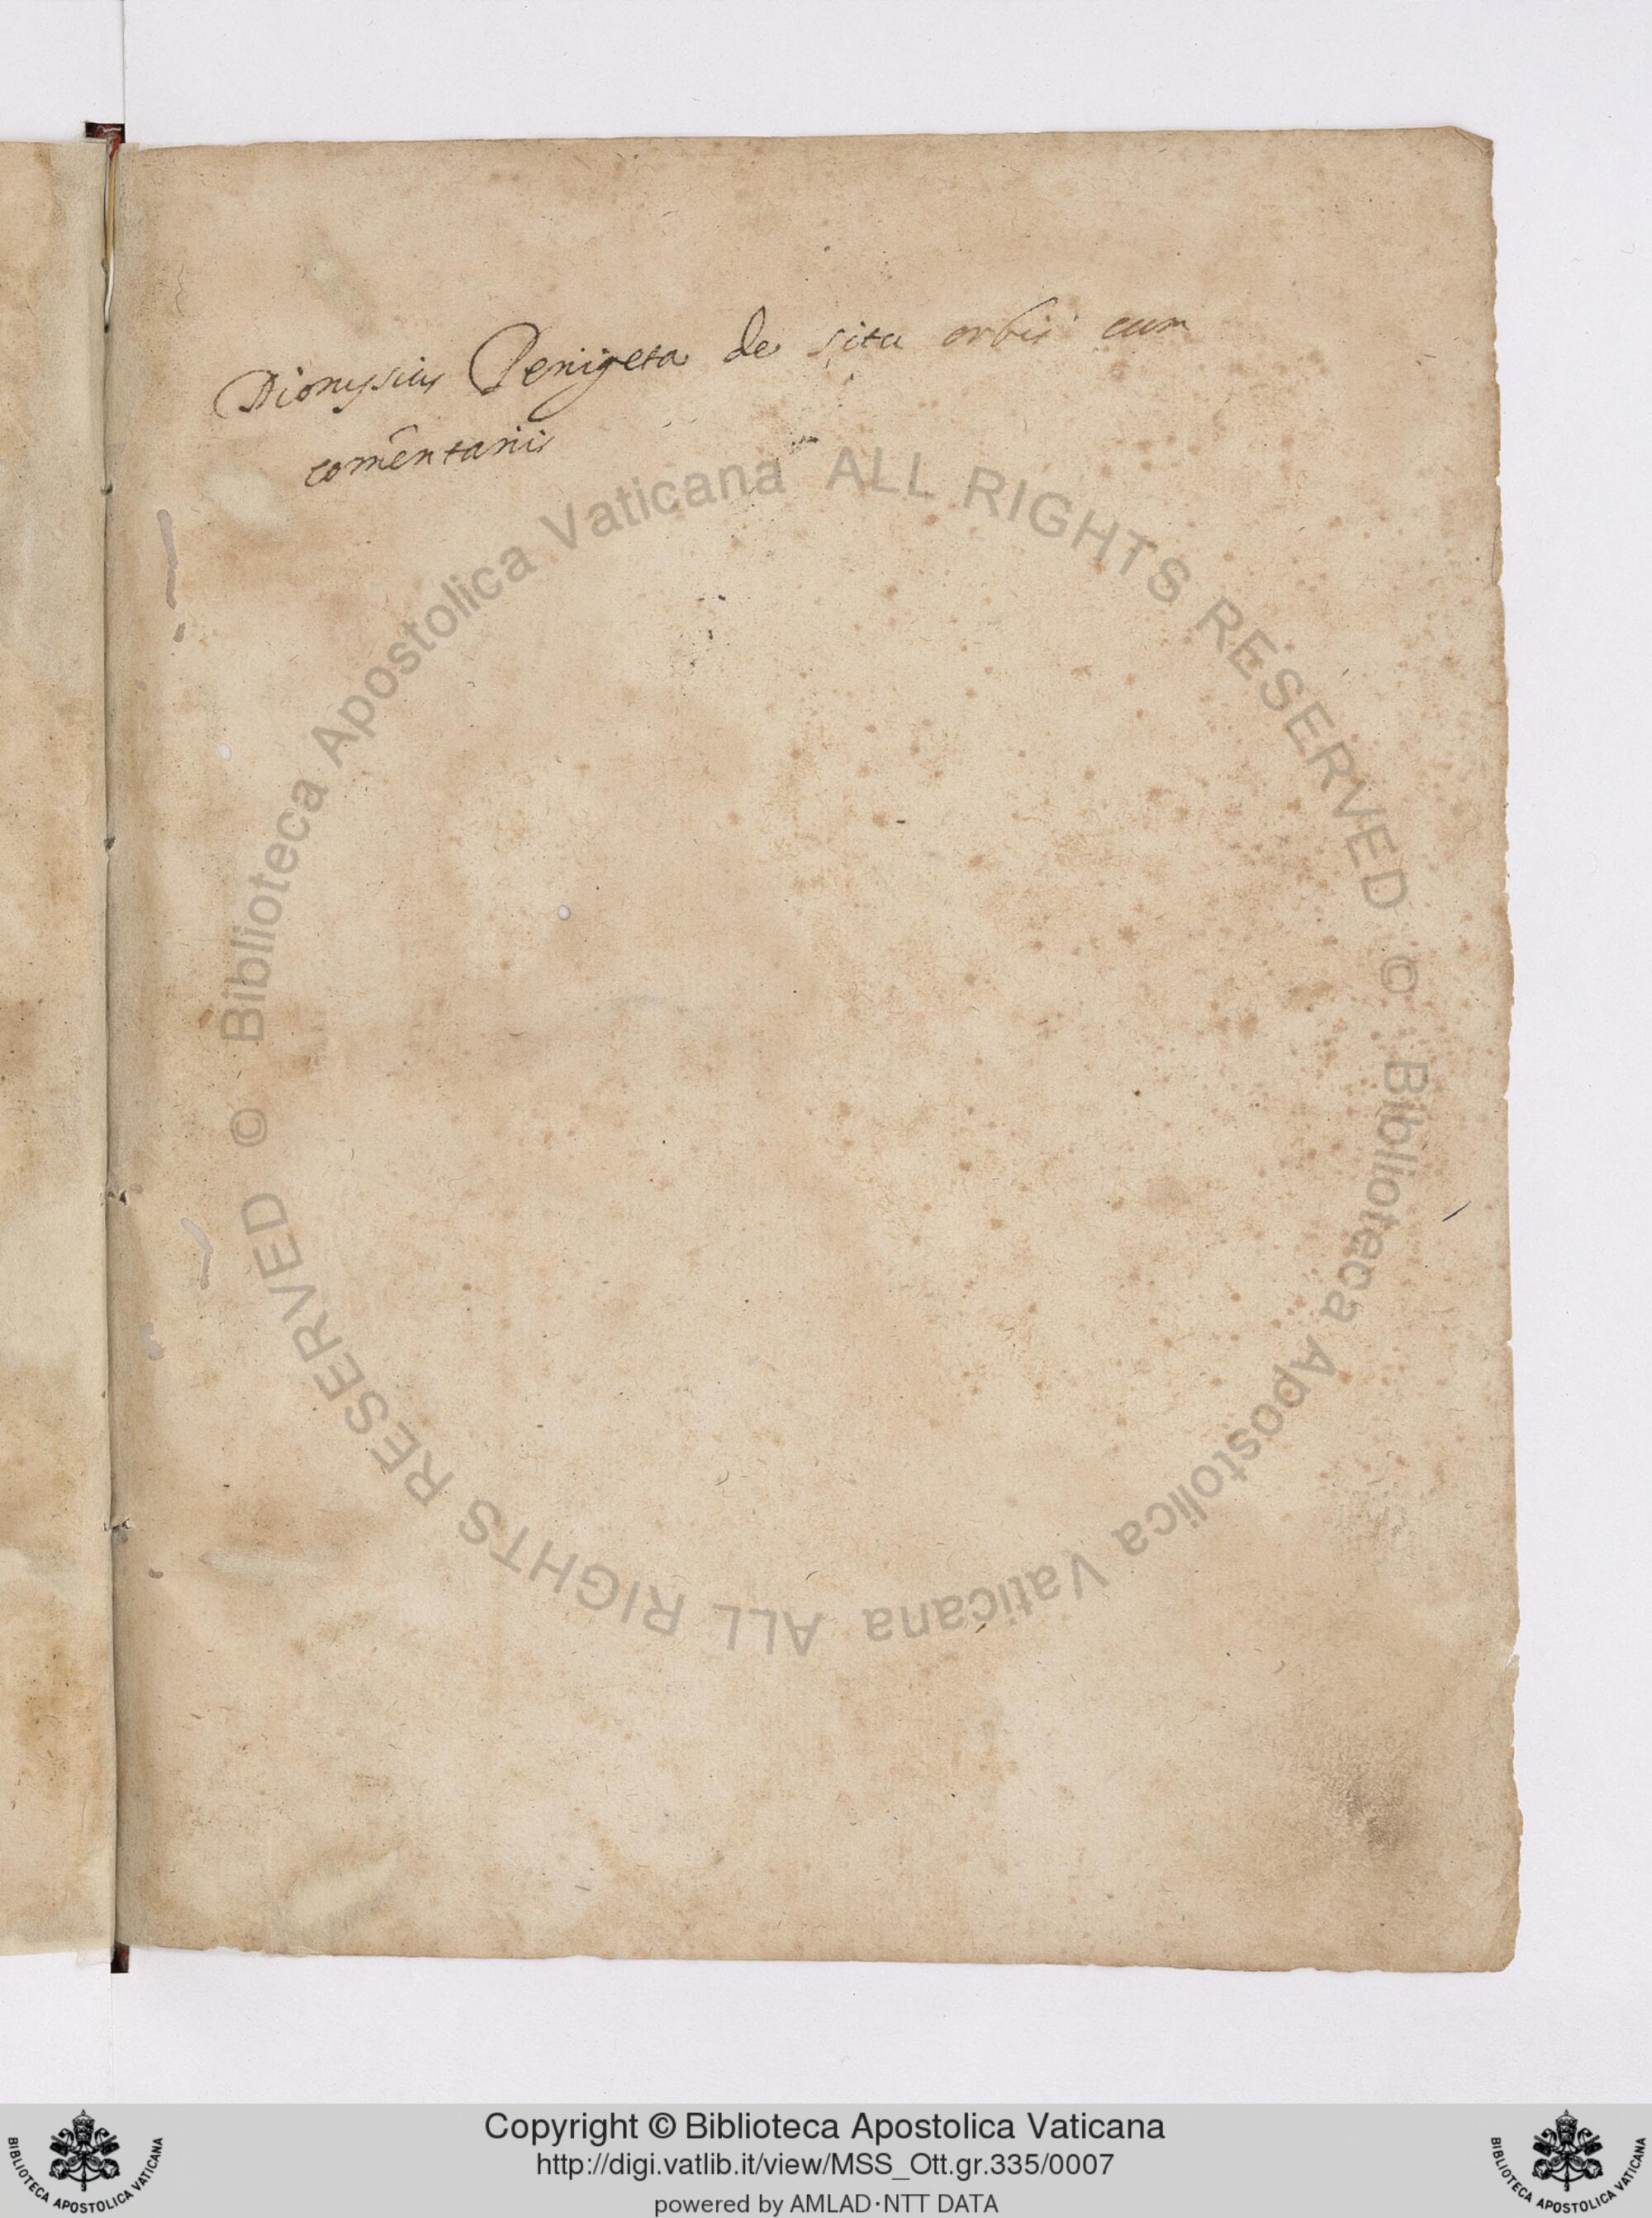 Dionysius Perigeta de situ orbis cum
comẽntariis
© Biblioteca Apostolica Vaticana ALL RIGHTS RESERVED
© Biblioteca Apostolica Vaticana ALL RIGHTS RESERVED
Copyright © Biblioteca Apostolica Vaticana
http://digi.vatlib.it/view/MSS_Ott.gr.335/0007
powered by AMLAD·NTT DATA
BIBLIOTECA APOSTOLICA VATICANA
BIBLIOTECA APOSTOLICA VATICANA